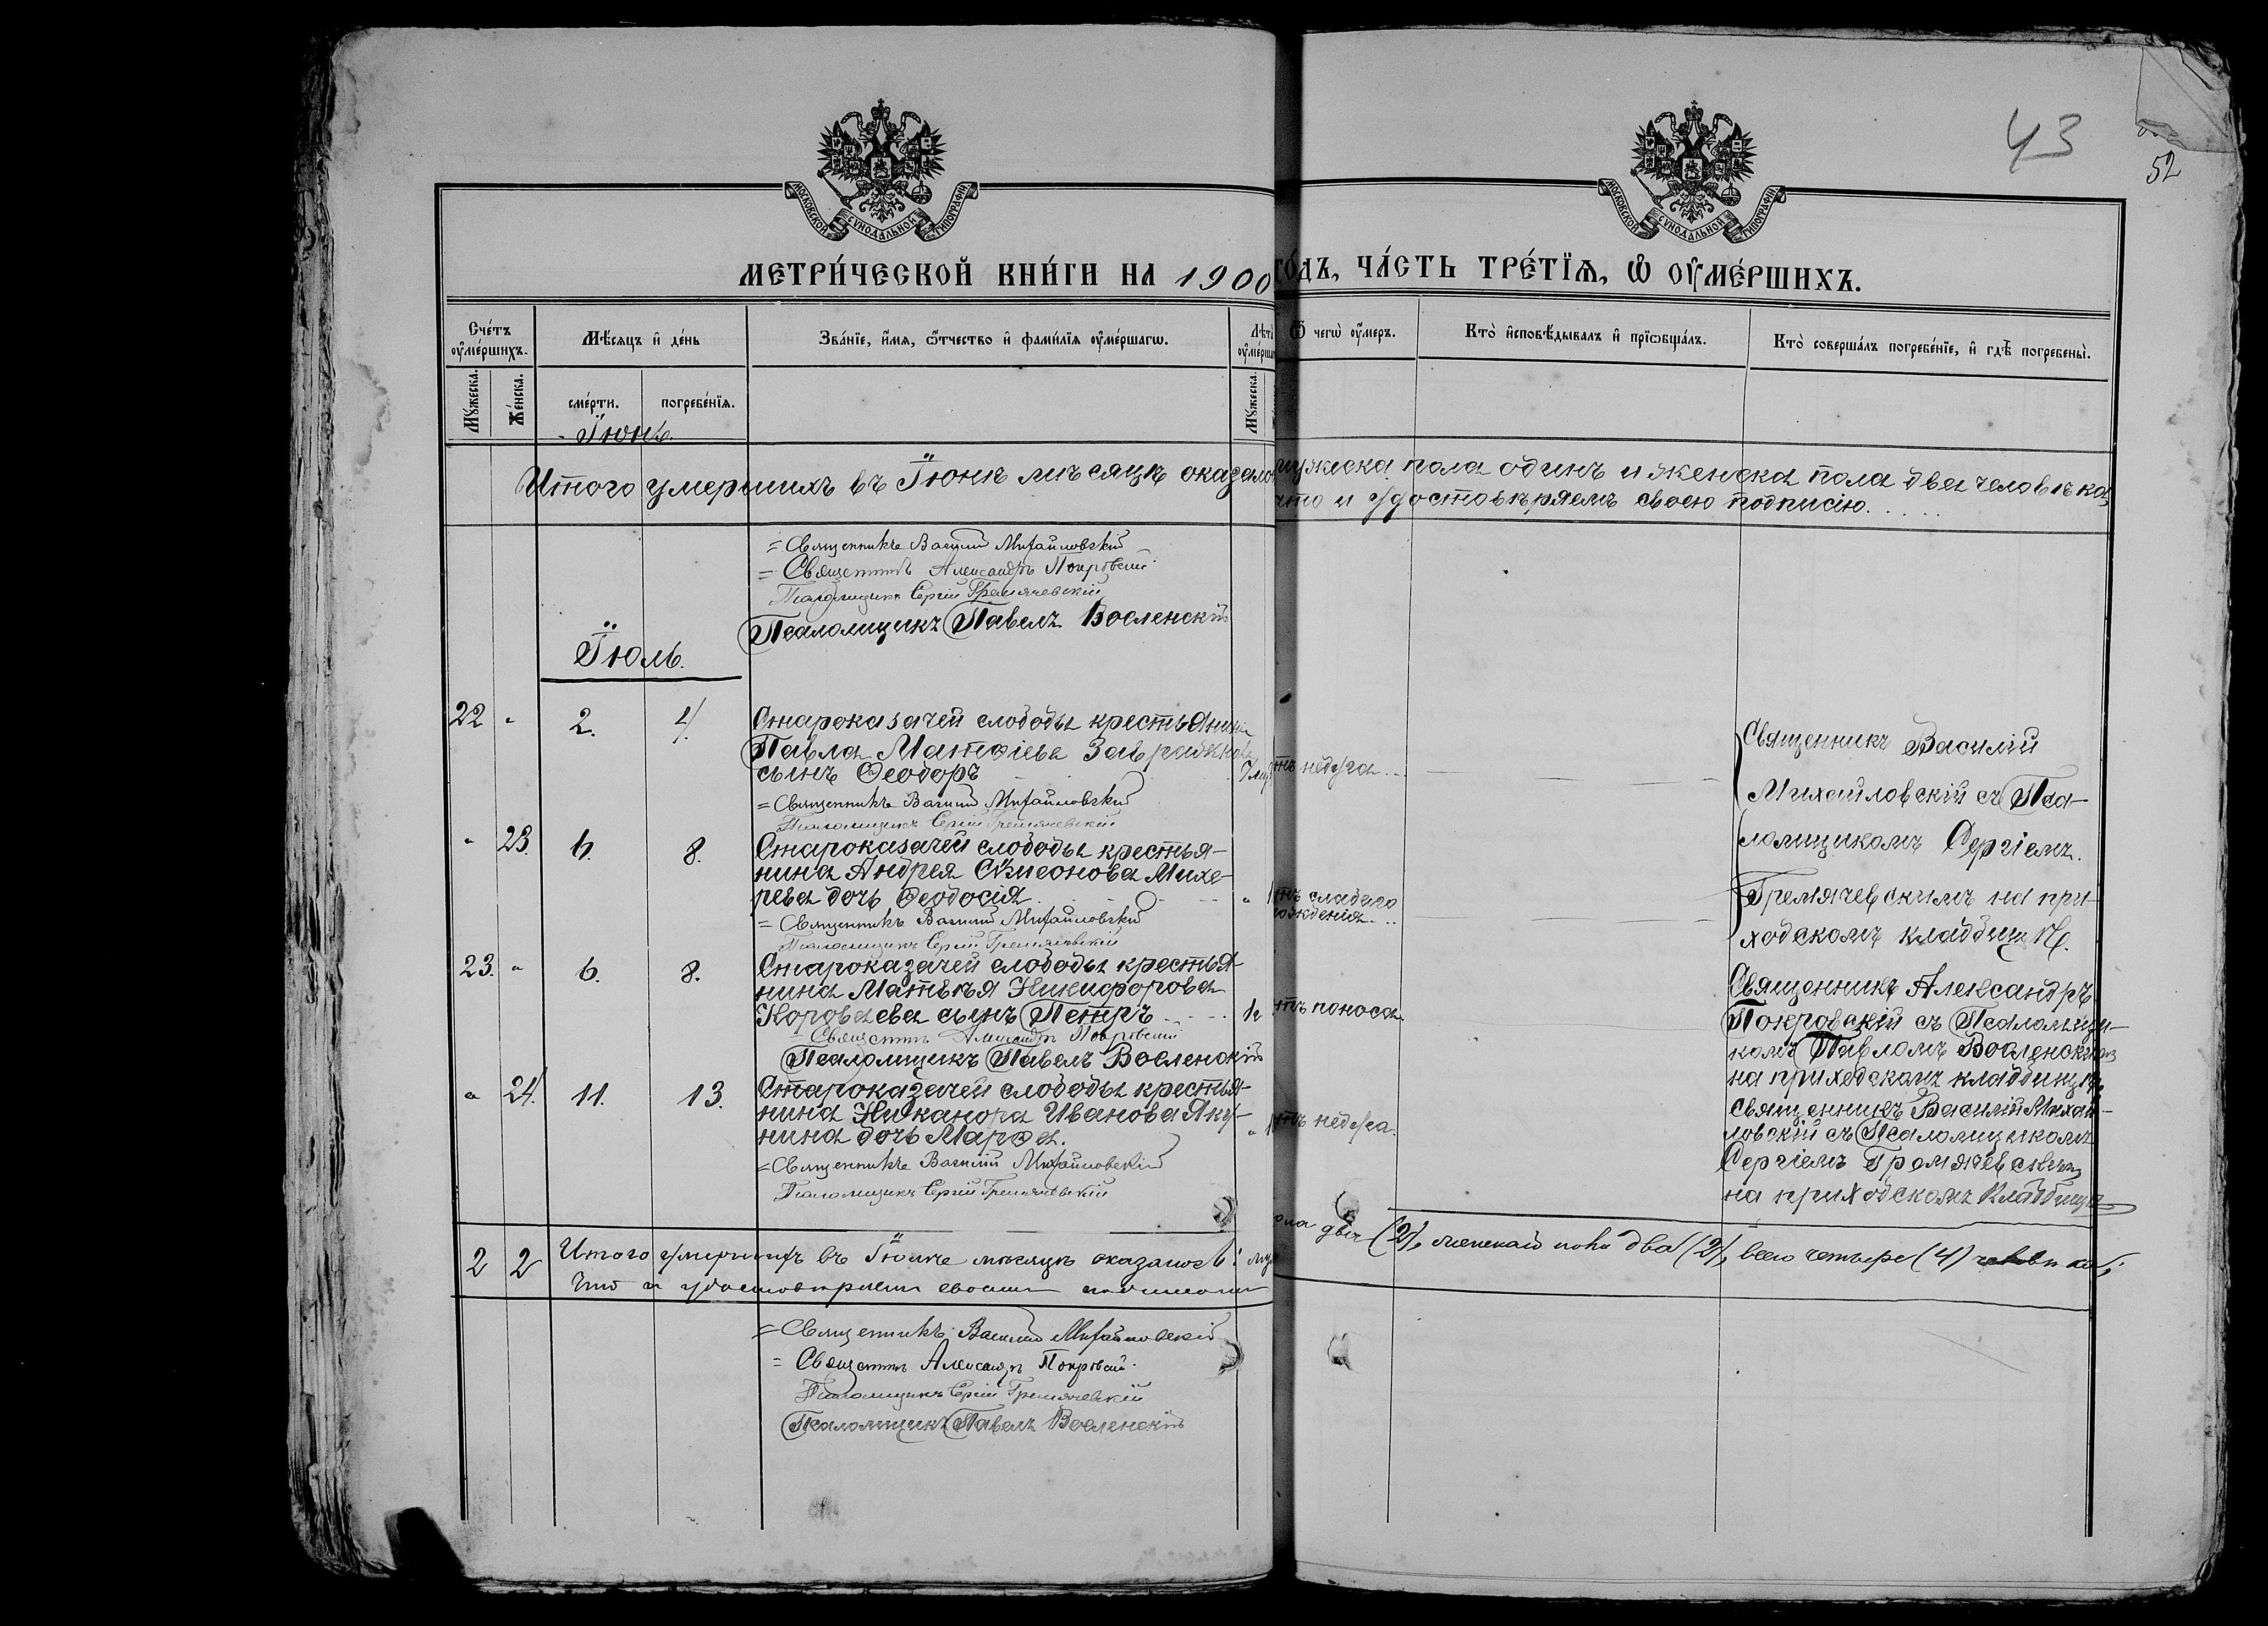 43
52
МОСКОВСКОЙ СѴНОДАЛЬНОЙ ТИПОГРАФІИ
МОСКОВСКОЙ СѴНОДАЛЬНОЙ ТИПОГРАФІИ
МЕТРИ́ЧЕСКОЙ КНИ́ГИ НА 1900 ГО́ДЪ, ЧА́СТЬ ТРЕ́ТЇѦ, Ѡ҆ ОУ҆МЕ́РШИХЪ.
Сче́тъ оу҆ме́ршихъ.
Мѣ́сяцъ и҆ де́нь
Зва́нїе, и҆́мя, ѻ҆́тчество и҆ фами́лїя оу҆ме́ршагѡ.
Ѿ чегѡ̀ оу҆́меръ.
Кто̀ и҆сповѣ́дывалъ и҆ прїѡбща́лъ.
Кто̀ соверша́лъ погребе́нїе, и҆ гдѣ̀ погребены̀.
Мꙋ́жеска.
Же́нска.
сме́рти.
погребе́нїя.
Мꙋ́жеска.
Іюнь.
Итого умершихъ въ Іюнѣ мѣсяцѣ оказало мужеска пола одинъ и женска пола два человѣка,
что и удостовѣряемъ своею подписію.....
= Священникъ Василій Михайловскій
= Священникъ Александръ Покровскій.
Псаломщикъ Сергій Гремячевскій
Псаломщикъ Павелъ Воеленскій
Іюль.
22 " 2. 4.
Староказачей слободы крестьянина
Павла Матѳіева
сынъ Ѳеодоръ
отъ недуга...
= Священникъ Василій Михайловскій
Псаломщикъ Сергій Гремячевскій
Священникъ Василій
Михайловскій съ Пса-
ломщикомъ Сергіемъ
Гремячевскимъ на при-
ходскомъ кладбищѣ.
" 23. 6. 8.
Староказачей слободы крестья-
нина Андрея Сѵмеонова Михе-
рева дочь Ѳеодосія
отъ слабаго
рожденія...
= Священникъ Василій Михайловскій
Псаломщикъ Сергій Гремячевскій
23. " 6. 8.
Староказачей слободы крестья-
нина Матвѣя Никифорова
Короваева сынъ Петръ
отъ поноса.
= Священникъ Александръ Покровскій
Псаломщикъ Павелъ Воеленскій
Священникъ Александръ
Покровскій съ Псаломщи-
комъ Павломъ Воеленскимъ
на приходскомъ кладбищѣ
" 24. 11. 13.
Староказачей слободы крестья-
нина Никанора Иванова Яку-
нина дочь Марѳа.
отъ недуга.
= Священникъ Василій Михайловскій
Псаломщикъ Сергій Гремячевскій
Священникъ Василій Михай-
ловскій съ Псаломщикомъ
Сергіемъ Гремячевскимъ
на приходскомъ кладбищѣ
2 2 Итого умершихъ въ Іюлѣ мѣсяцѣ оказалось: пола два (2), женскаго пола два (2), всего четыре (4) человѣка;
что и удостовѣряемъ своею подписью
= Священникъ Василій Михайловскій
= Священникъ Александръ Покровскій.
Псаломщикъ Сергій Гремячевскій
Псаломщикъ Павелъ Воеленскій